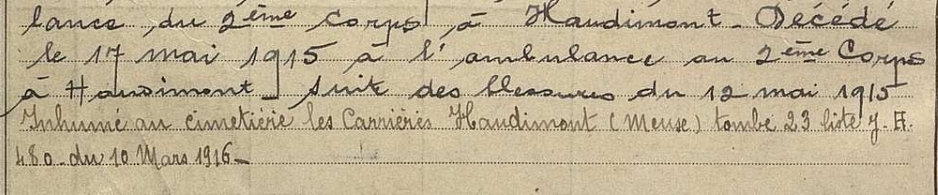 lance du 2ème Corps à Haudimont - Décédé
le 17 mai 1915 à l'ambulance au 2ème Corps
à Haudimont - Suite des blessures du 12 mai 1915
Inhumé au cimetière les Carrières Haudimont (Meuse) tombe 23 liste J. A.
480 - du 10 Mars 1916 -